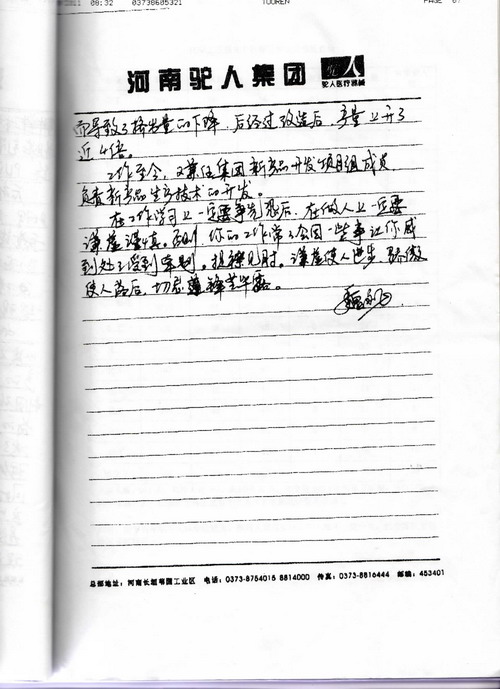 2011 08:32 03738685321 TUOREN PAGE 07
河南驼人集团 驼人
驼人医疗器械
而导致了挤出量的下降，后经过改造后，产量上升了
近4倍。
工作至今，又兼任集团新产品开发项目组成员，
负责新产品生产技术的开发。
在工作学习上一定要争先恐后，在做人上一定要
谦虚谨慎。否则，你的工作常常会因一些事让你感
到处处受到牵制。捉襟见肘。谦虚使人进步，骄傲
使人落后，切忌锋芒毕露。
总部地址：河南长垣苇园工业区 电话：0373-8754015 8814000 传真：0373-8816444 邮编：453401